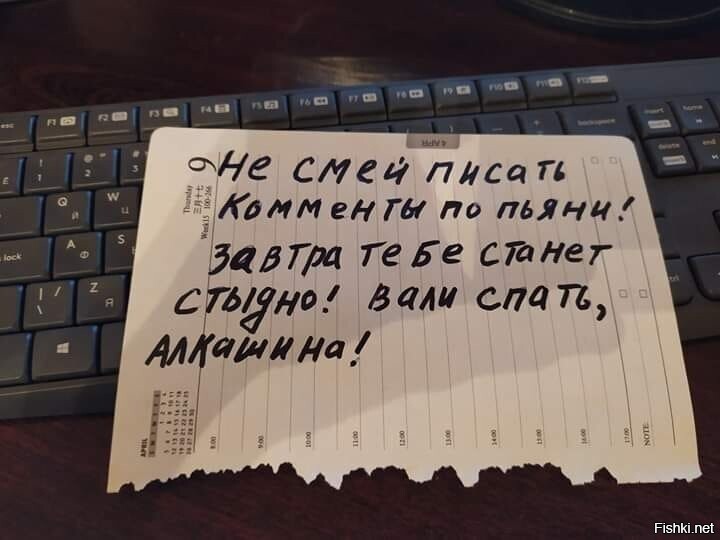 Не смей писать
Комменты по пьяни!
Завтра тебе станет
стыдно! Вали спать,
Алкашина!
4 APR
9
Thursday
三月十七
Week15 100-266
APRIL
8:00
9:00
10:00
11:00
12:00
13:00
14:00
15:00
16:00
17:00
NOTE:
esc
F1
F2
F3
F4
F5
F6
F7
F8
F9
F10
F11
F12
backspace
insert
home
delete
end
lock
Q Й
A Ф
S
Z Я
Fishki.net